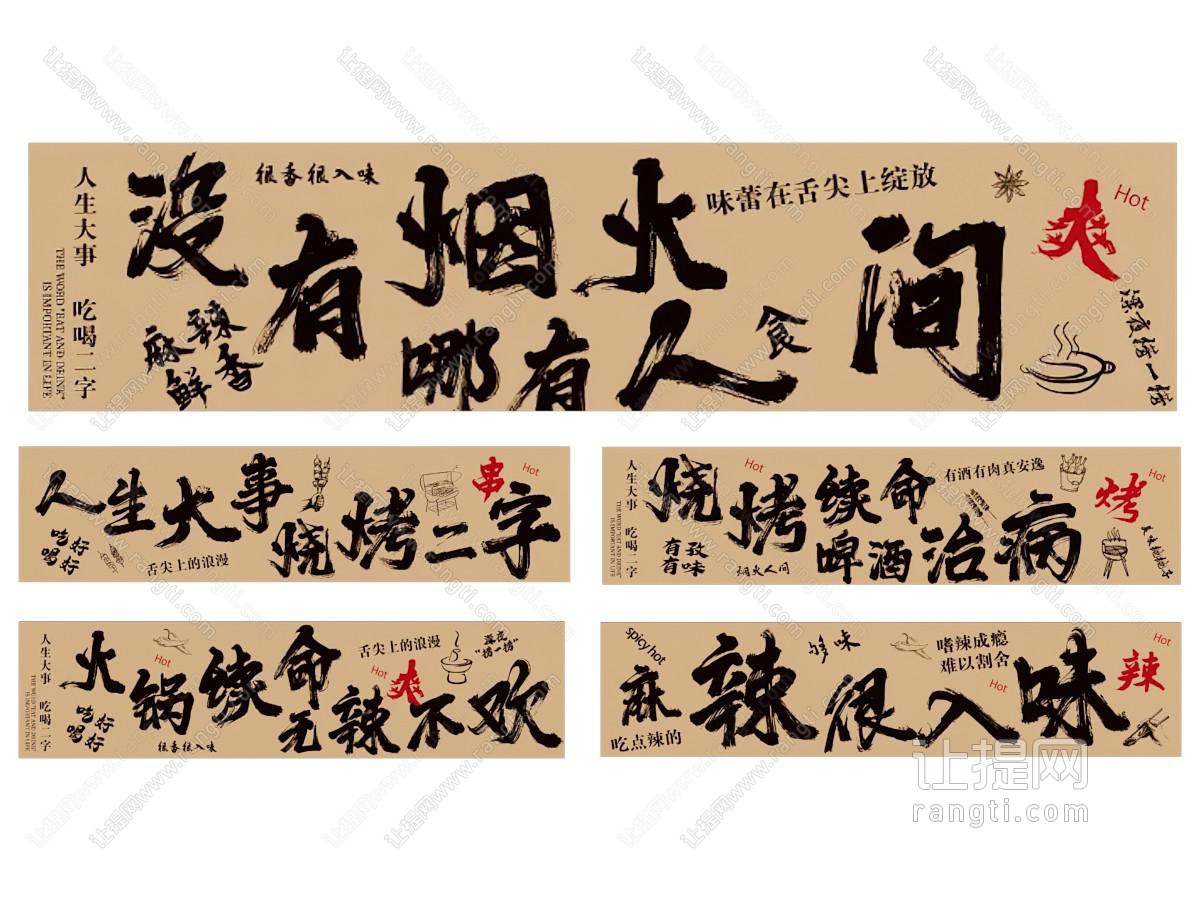 人生大事 吃喝二字
THE WORD "EAT AND DRINK"
IS IMPORTANT IN LIFE
没有烟火
哪有人间
很香很入味
麻辣鲜香
味蕾在舌尖上绽放
食
爽
Hot
深夜撸一撸
人生大事
烧烤二字
好好
吃喝
舌尖上的浪漫
串
Hot
人生大事 吃喝二字
THE WORD "EAT AND DRINK"
IS IMPORTANT IN LIFE
烧烤续命
啤酒治病
Hot
有滋有味
烟火人间
有酒有肉真安逸
烤
Hot
人生大事 吃喝二字
THE WORD "EAT AND DRINK"
IS IMPORTANT IN LIFE
火锅续命
无辣不欢
Hot
好好
吃喝
很香很入味
舌尖上的浪漫
Hot
爽
深夜
"捞一捞"
spicy hot
麻辣很入味
吃点辣的
够味
嗜辣成瘾
难以割舍
Hot
Hot
辣
让提网
rangti.com
让提网www.rangti.com